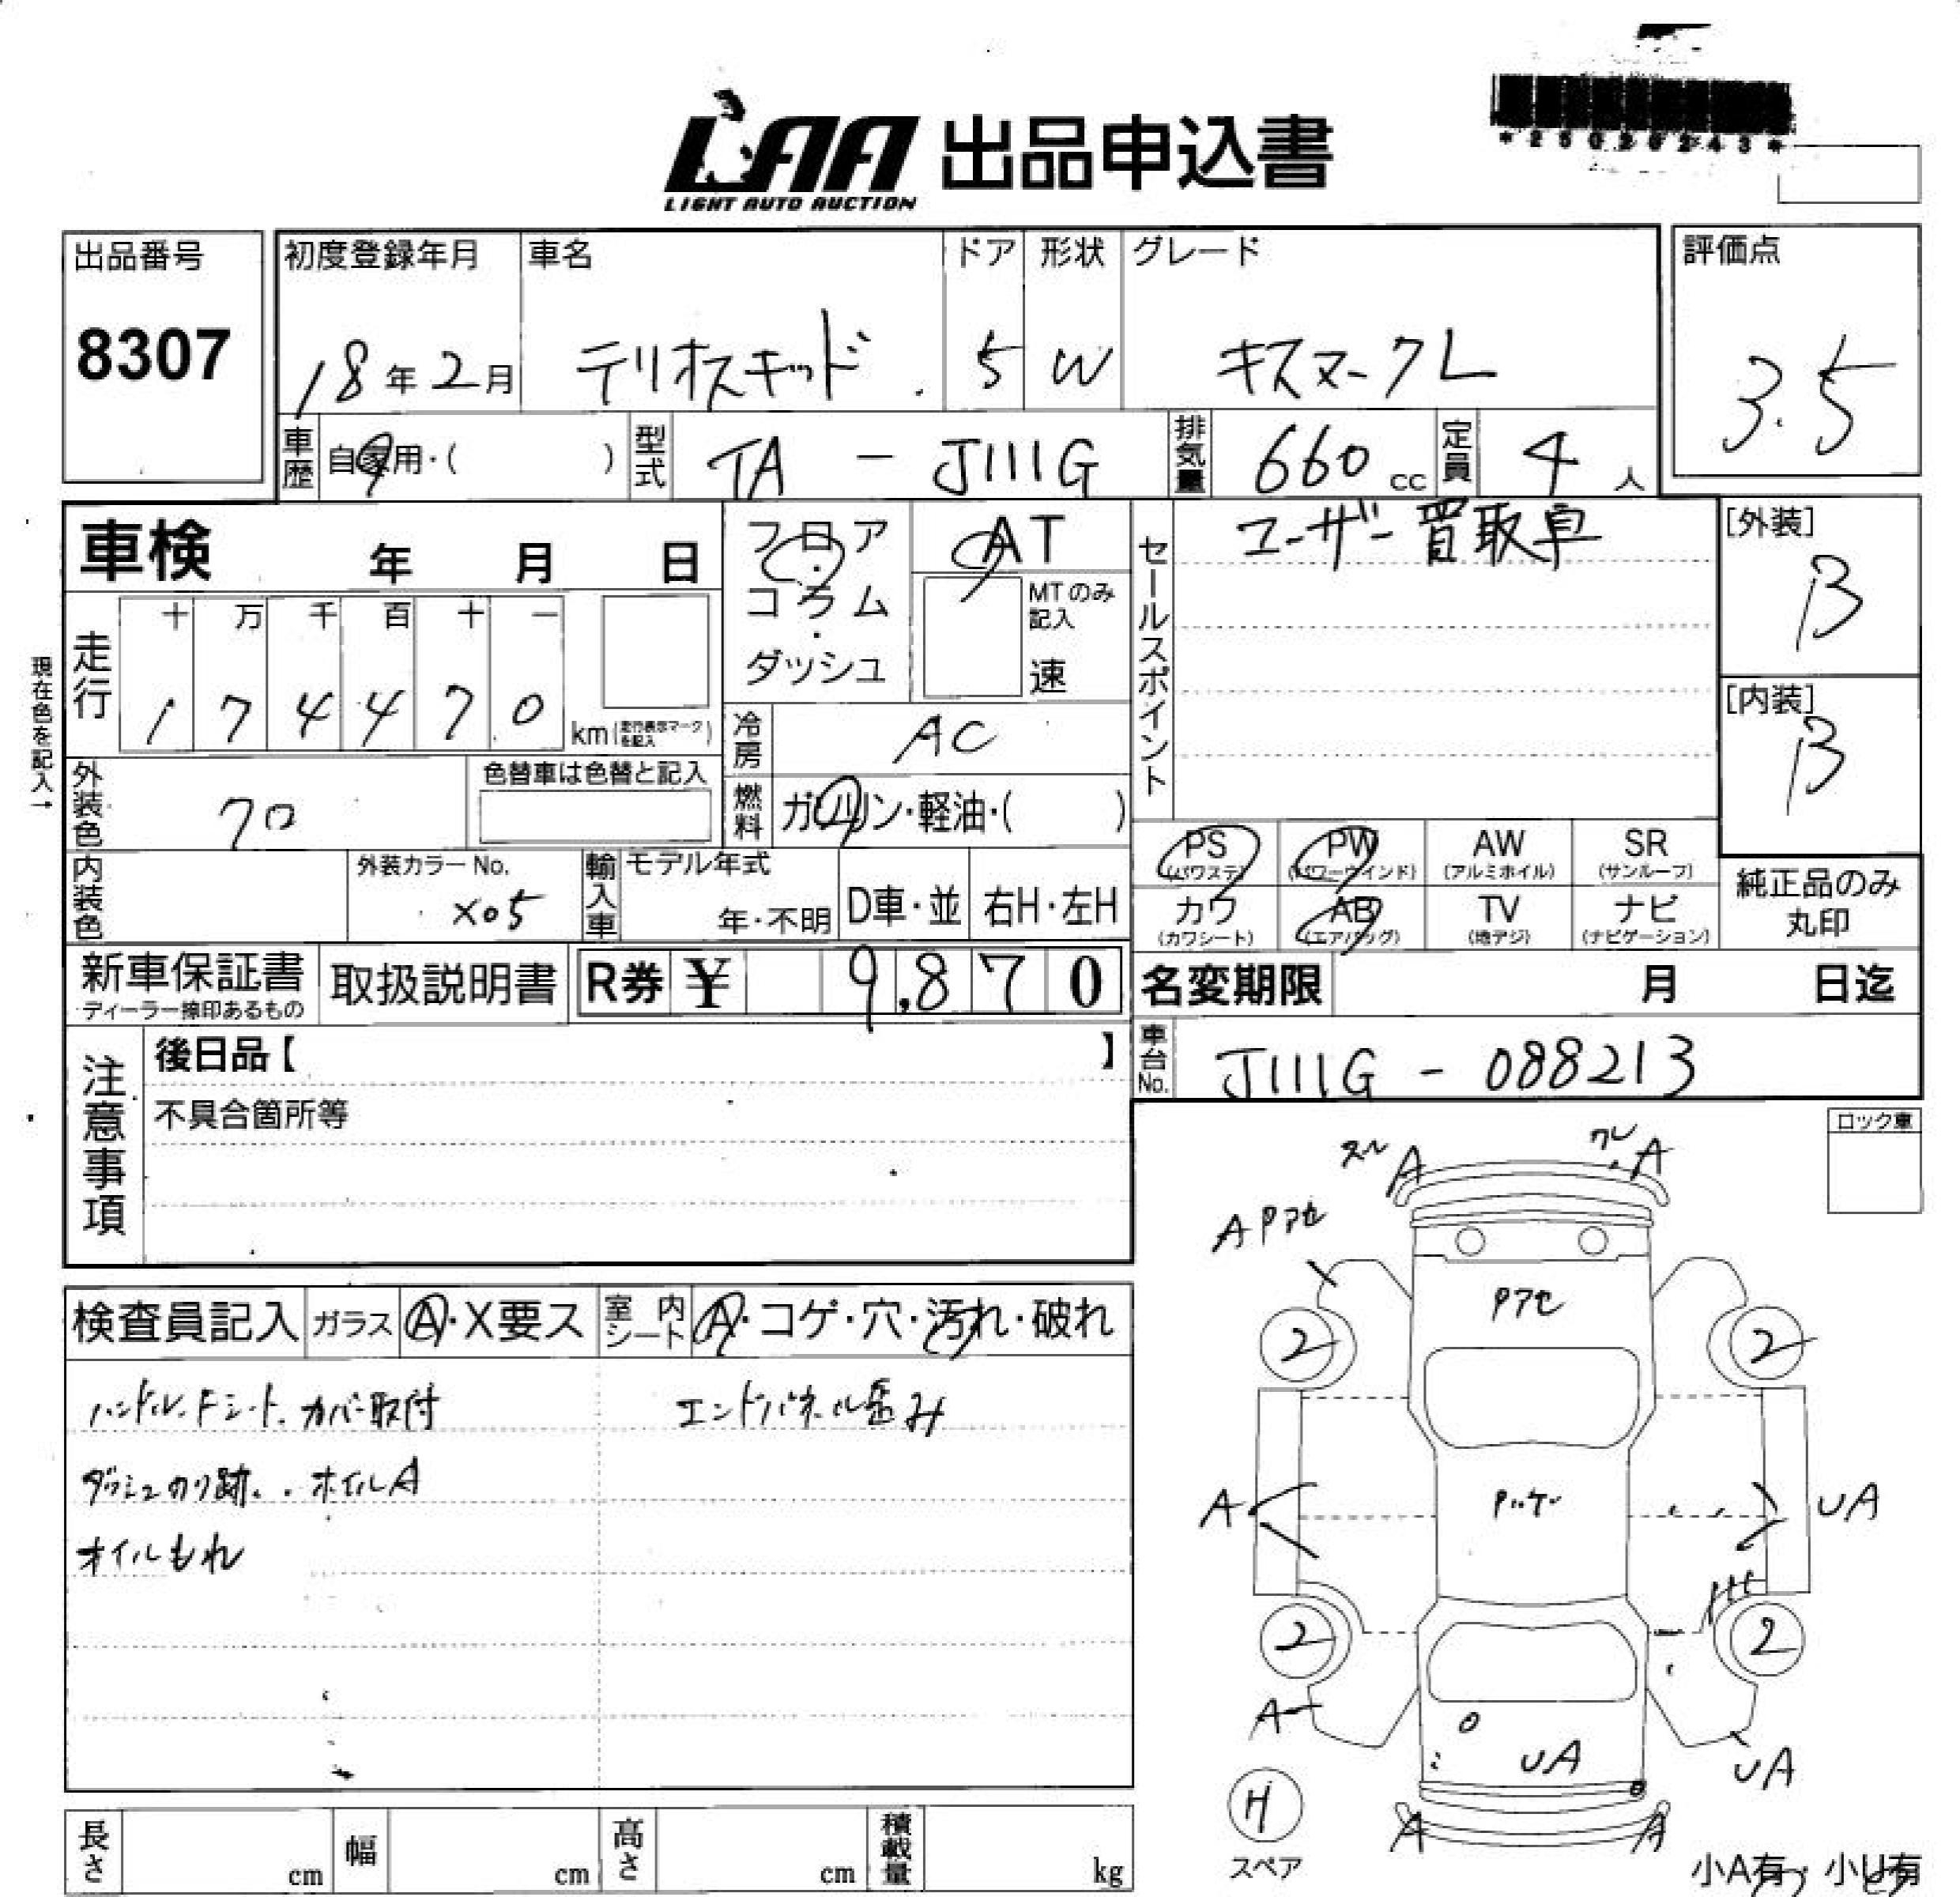 LAA 出品申込書
LIGHT AUTO AUCTION
*25026243*
出品番号
8307
初度登録年月
18年2月
車名
テリオスキッド
ドア
5
形状
W
グレード
キスマークL
評価点
3.5
車歴
自家用・( )
型式
TA - J111G
排気量
660cc
定員
4人
車検 年 月 日
フロア・コラム・ダッシュ
AT
MTのみ記入
速
セールスポイント
ユーザー買取車
[外装]
B
[内装]
B
現在色を記入→
走行
十 万 千 百 十 一
1 7 4 4 7 0 km (走行表示マークを記入)
冷房
AC
外装色
クロ
色替車は色替と記入
燃料
ガソリン・軽油・( )
PS (パワステ)
PW (パワーウインド)
AW (アルミホイル)
SR (サンルーフ)
カワ (カワシート)
AB (エアバッグ)
TV (地デジ)
ナビ (ナビゲーション)
純正品のみ丸印
内装色
外装カラーNo.
X05
輸入車
モデル年式
年・不明
D車・並
右H・左H
新車保証書
ディーラー捺印あるもの
取扱説明書
R券 ¥ 9,870
名変期限 月 日迄
車台No.
J111G - 088213
注意事項
後日品【 】
不具合箇所等
ロック車
検査員記入
ガラス
A・X要ス
室内シート
A・コゲ・穴・汚れ・破れ
ハンドル、Fシート、カバー取付
エンドパネル歪み
ダッシュのり跡、ホイルA
オイルもれ
スレ A
ワレ A
A Pアセ
Pアセ
2
2
A
Pハゲ
UA
2
2
A
UA
UA
H
スペア
A
A
小A有・小U有
長さ cm
幅 cm
高さ cm
積載量 kg